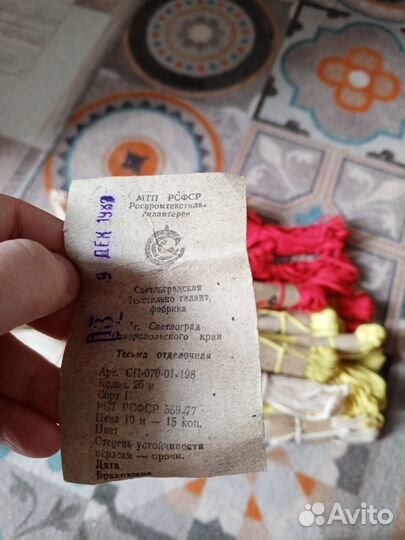 МТП РСФСР
Роспромтекстиль-
галантерея
9 ДЕК 198
Светлоградская
Текстильно галант.
фабрика
г. Светлоград
Ставропольского края
Тесьма отделочная
Арт. СП-070-01-198
Колич. 25 м
Сорт I
РСТ РСФСР 569-77
Цена 10 м — 15 коп.
Цвет
Степень устойчивости
окраски — прочн.
Дата
Браковщик
Avito